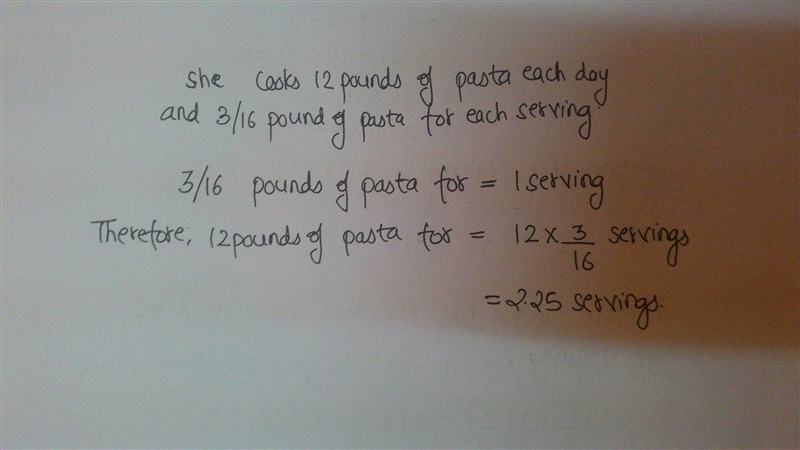 she cooks 12 pounds of pasta each day
and 3/16 pound of pasta for each serving.
3/16 pounds of pasta for = 1 serving
Therefore, 12 pounds of pasta for = 12 x 3/16 servings
= 2.25 servings.